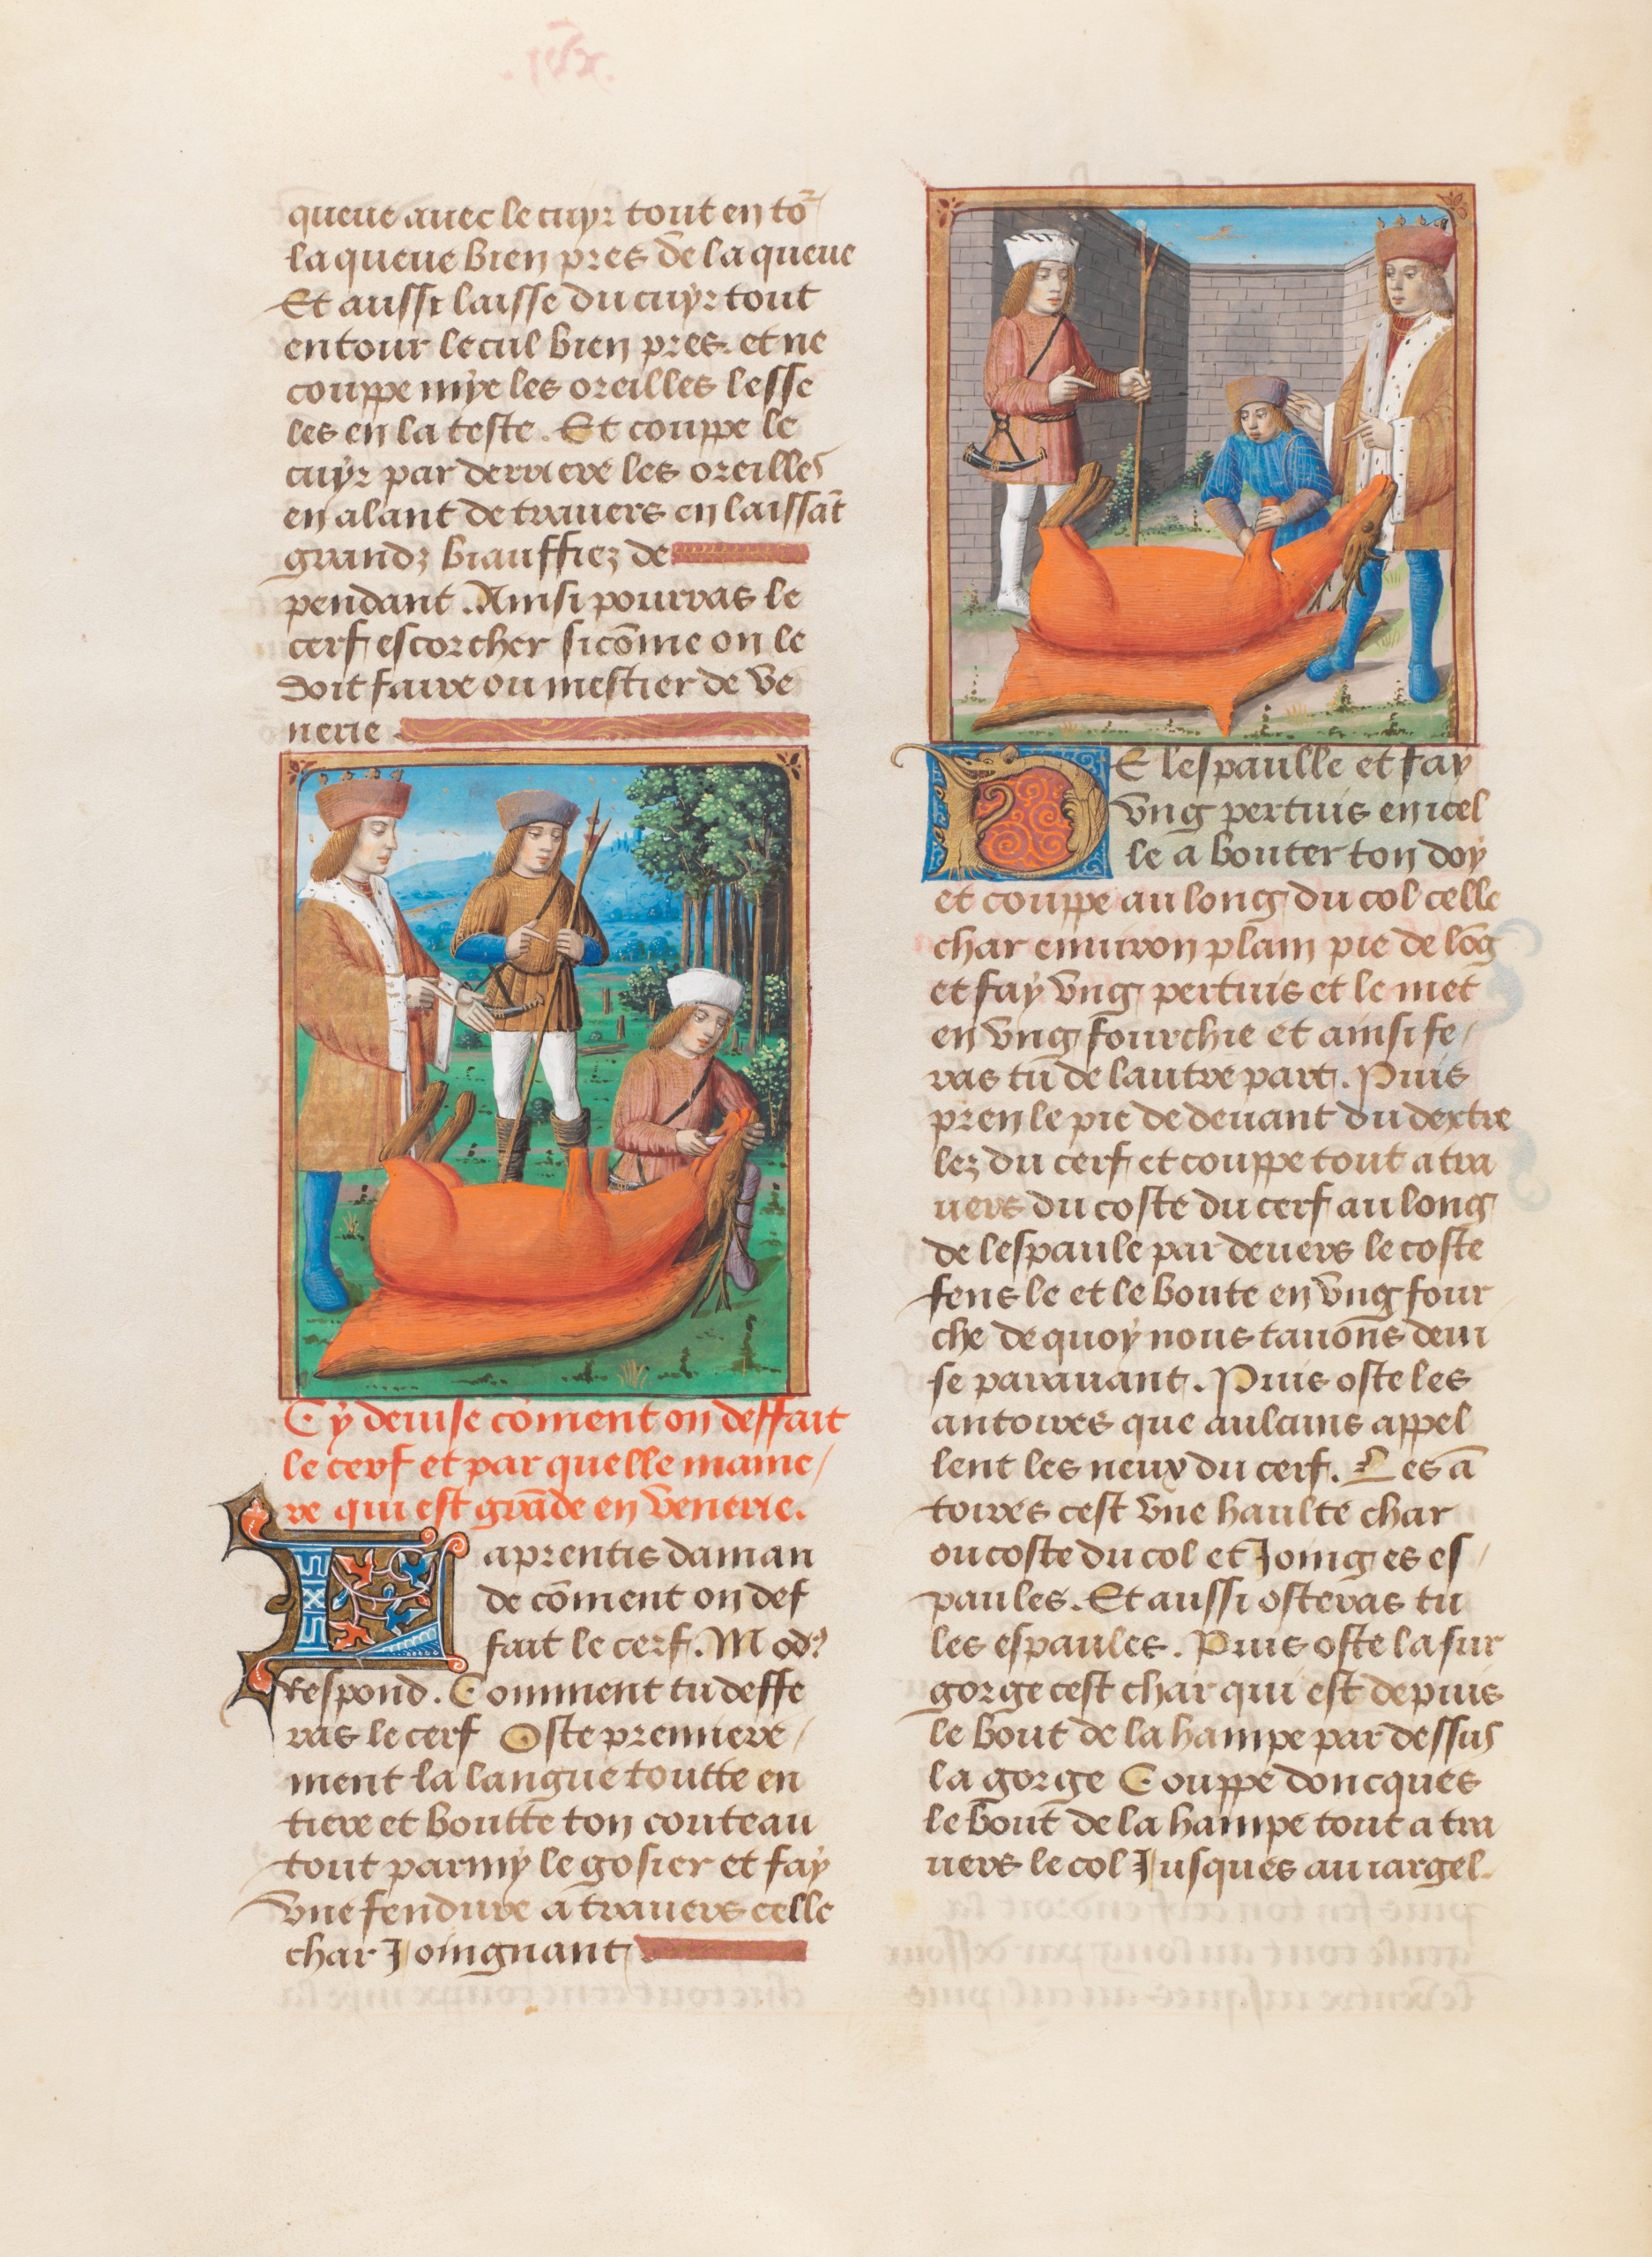 queue avec le cuyr tout en tō
la queue bien pres de la queue
Et aussi laisse du cuyr tout
entour le cul bien pres. et ne
couppe mye les oreilles lesse
les en la teste. Et couppe le
cuyr par derriere les oreilles
en alant de travers en laissāt
grandz biauffiez de
pendant. Ainsi pourras le
cerf escorcher si cōme on le
doit faire ou mestier de ve
nerie
Cy devise cōment on deffait
le cerf et par quelle manie/
re qui est grāde en venerie.
L aprentis daman
de cōment on def
fait le cerf. Mod9
Respond. Comment tu deffe
ras le cerf Oste premiere/
ment la langue toutte en
tiere et boutte ton couteau
tout parmy le gosier et fay
vne fendure a travers celle
char Joingnant
DE lespaulle et fay
vng pertuis en icel
le a bouter ton doy
et couppe au long du col celle
char environ plain pie de lōg
et fay vng pertuis et le met
en vng fourchie et ainsi fe/
ras tu de lautre part. Puis
pren le pie de devant du dextre
lez du cerf et couppe tout a tra
vers du coste du cerf au long
de lespaule par devers le coste
fens le et le boute en vng four
che de quoy nous tavons devi
se paravant. Puis oste les
antoires que aulcuns appel
lent les neux du cerf. Les ā
toires cest vne haulte char
ou coste du col et Joing es es/
paules. Et aussi osteras tu
les espaules. Puis oste la sur
gorge cest char qui est depuis
le bout de la hampe par dessus
la gorge Couppe doncques
le bout de la hampe tout a tra
vers le col Jusques au iargel.